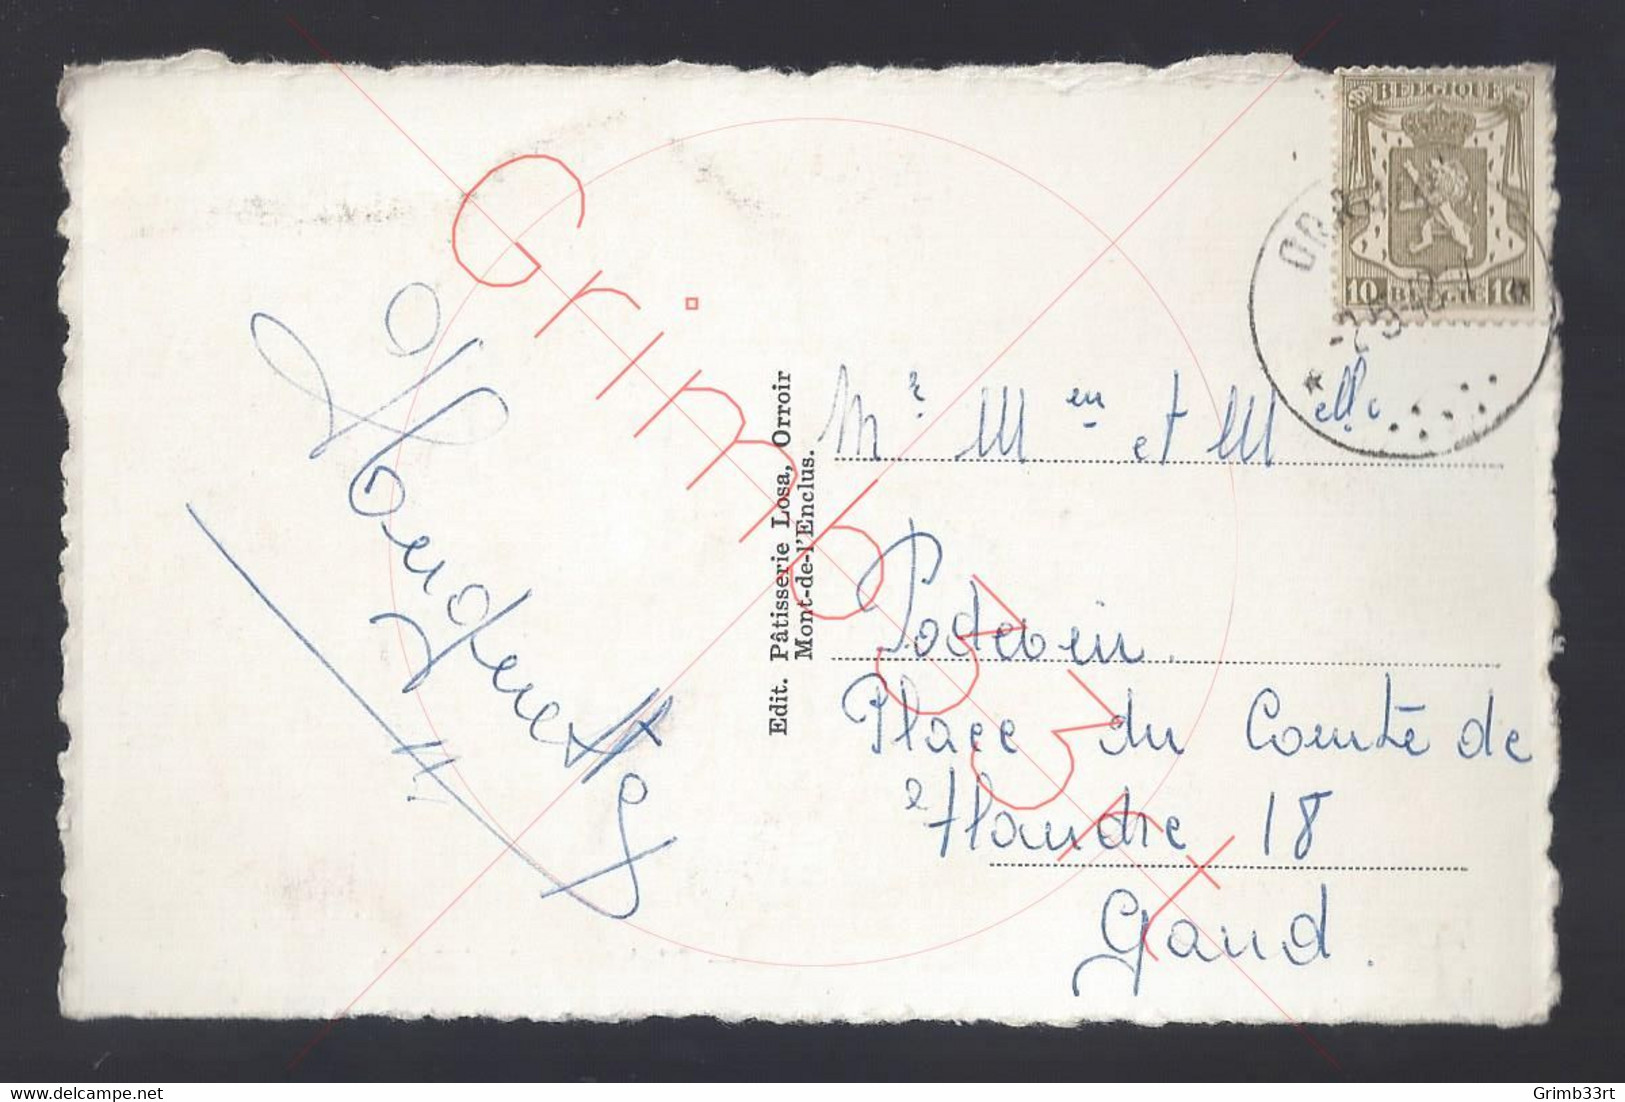 BELGIQUE
10 BELGIË 10
Edit. Pâtisserie Losa, Orroir
Mont-de-l'Enclus.
Mr Men et Melle
Podevin.
Place du Comte de
Flandre 18
Gand.
Grimb33rt
delcampe.net
Grimb33rt